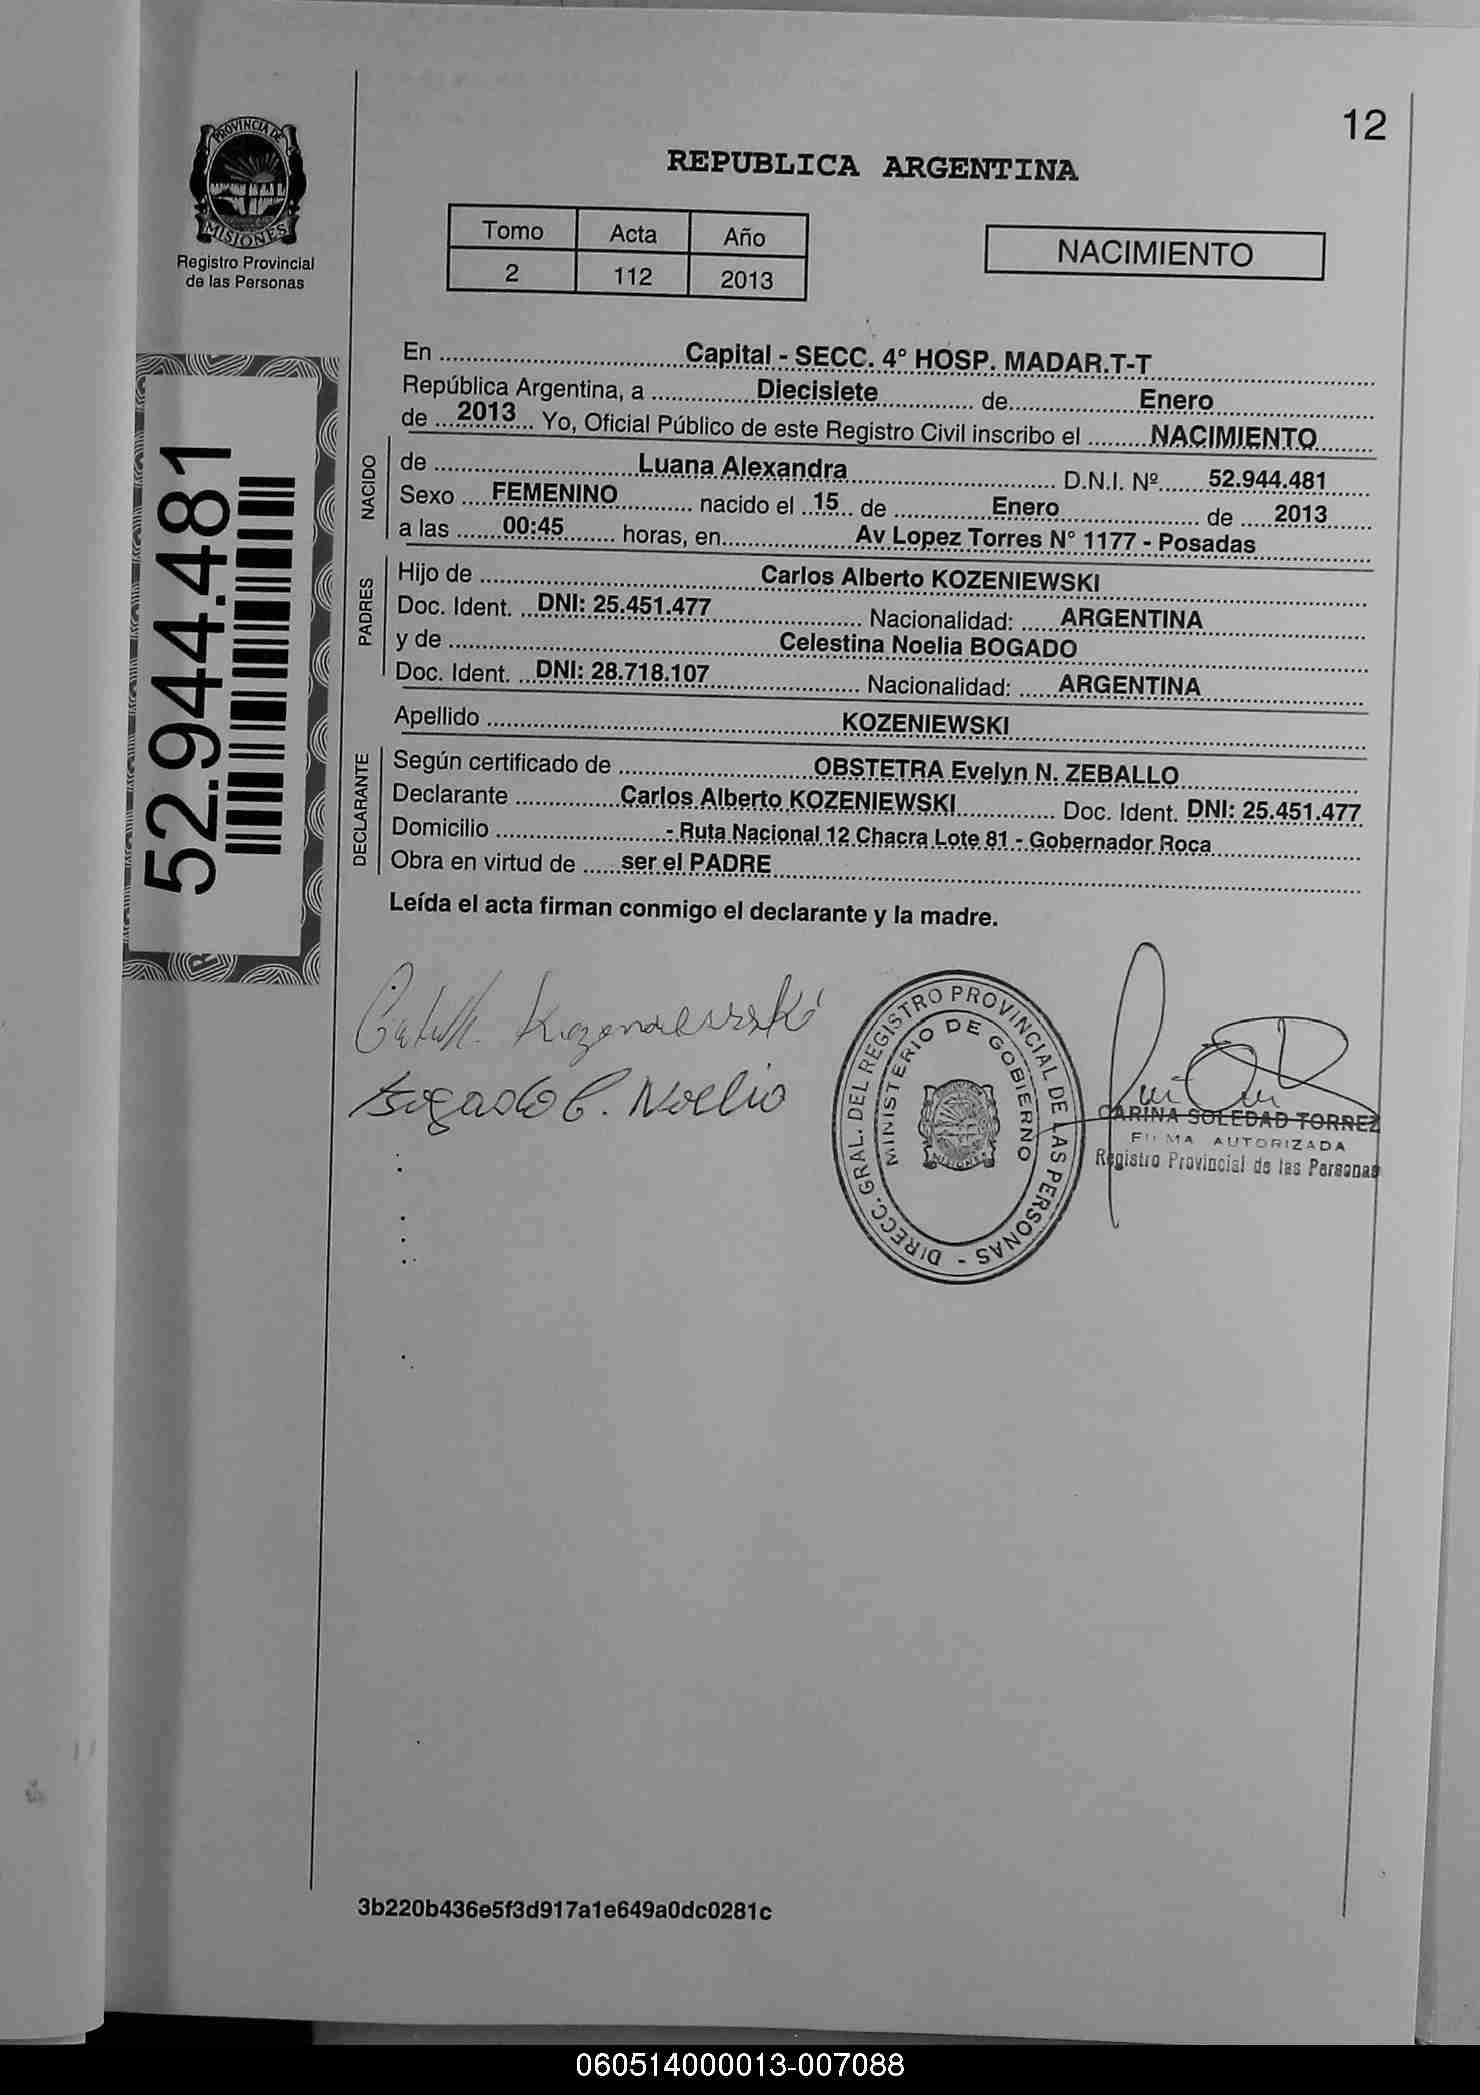 12
PROVINCIA DE
MISIONES
Registro Provincial
de las Personas
REPUBLICA ARGENTINA
Tomo Acta Año
2 112 2013
NACIMIENTO
52.944.481
En Capital - SECC. 4° HOSP. MADAR.T-T
República Argentina, a Diecisiete de Enero
de 2013 Yo, Oficial Público de este Registro Civil inscribo el NACIMIENTO
NACIDO
de Luana Alexandra D.N.I. Nº 52.944.481
Sexo FEMENINO nacido el 15 de Enero de 2013
a las 00:45 horas, en Av Lopez Torres N° 1177 - Posadas
PADRES
Hijo de Carlos Alberto KOZENIEWSKI
Doc. Ident. DNI: 25.451.477 Nacionalidad: ARGENTINA
y de Celestina Noelia BOGADO
Doc. Ident. DNI: 28.718.107 Nacionalidad: ARGENTINA
Apellido KOZENIEWSKI
DECLARANTE
Según certificado de OBSTETRA Evelyn N. ZEBALLO
Declarante Carlos Alberto KOZENIEWSKI Doc. Ident. DNI: 25.451.477
Domicilio - Ruta Nacional 12 Chacra Lote 81 - Gobernador Roca
Obra en virtud de ser el PADRE
Leída el acta firman conmigo el declarante y la madre.
Bogado C. Noelia
DIRECC. GRAL. DEL REGISTRO PROVINCIAL DE LAS PERSONAS -
MINISTERIO DE GOBIERNO
MISIONES
CARINA SOLEDAD TORREZ
FIRMA AUTORIZADA
Registro Provincial de las Personas
3b220b436e5f3d917a1e649a0dc0281c
060514000013-007088